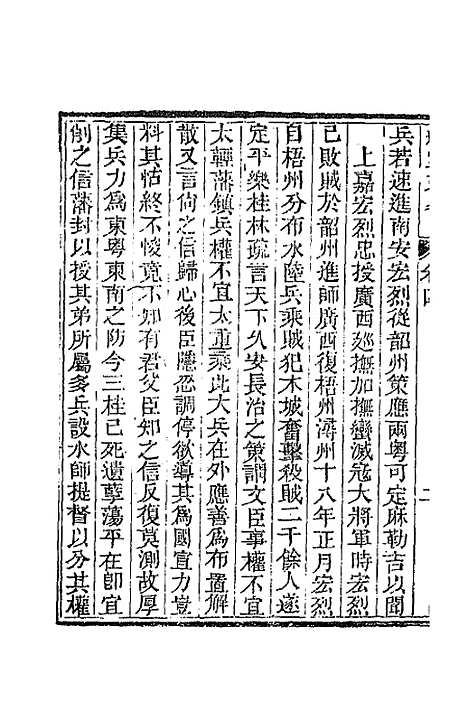 卷四
兵若速進南安宏烈從韶州策應兩粤可定麻勒吉以聞
上嘉宏烈忠授廣西廵撫加撫蠻滅寇大將軍時宏烈
已敗賊於韶州進師廣西復梧州潯州十八年正月宏烈
自梧州分布水陸兵乘賊犯木城奮擊殺賊二千餘人遂
定平樂桂林疏言天下久安長治之策謂文臣事權不宜
太輕藩鎮兵權不宜太重乘此大兵在外應善爲布置解
散又言尚之信歸心後臣隱忍調停欲導其爲國宣力豈
料其怙終不悛竟不知有君父臣知之信反復莫測故厚
集兵力爲東粤東南之防今三桂已死遺孽蕩平在即宜
削之信藩封以授其弟所屬多兵設水師提督以分其權